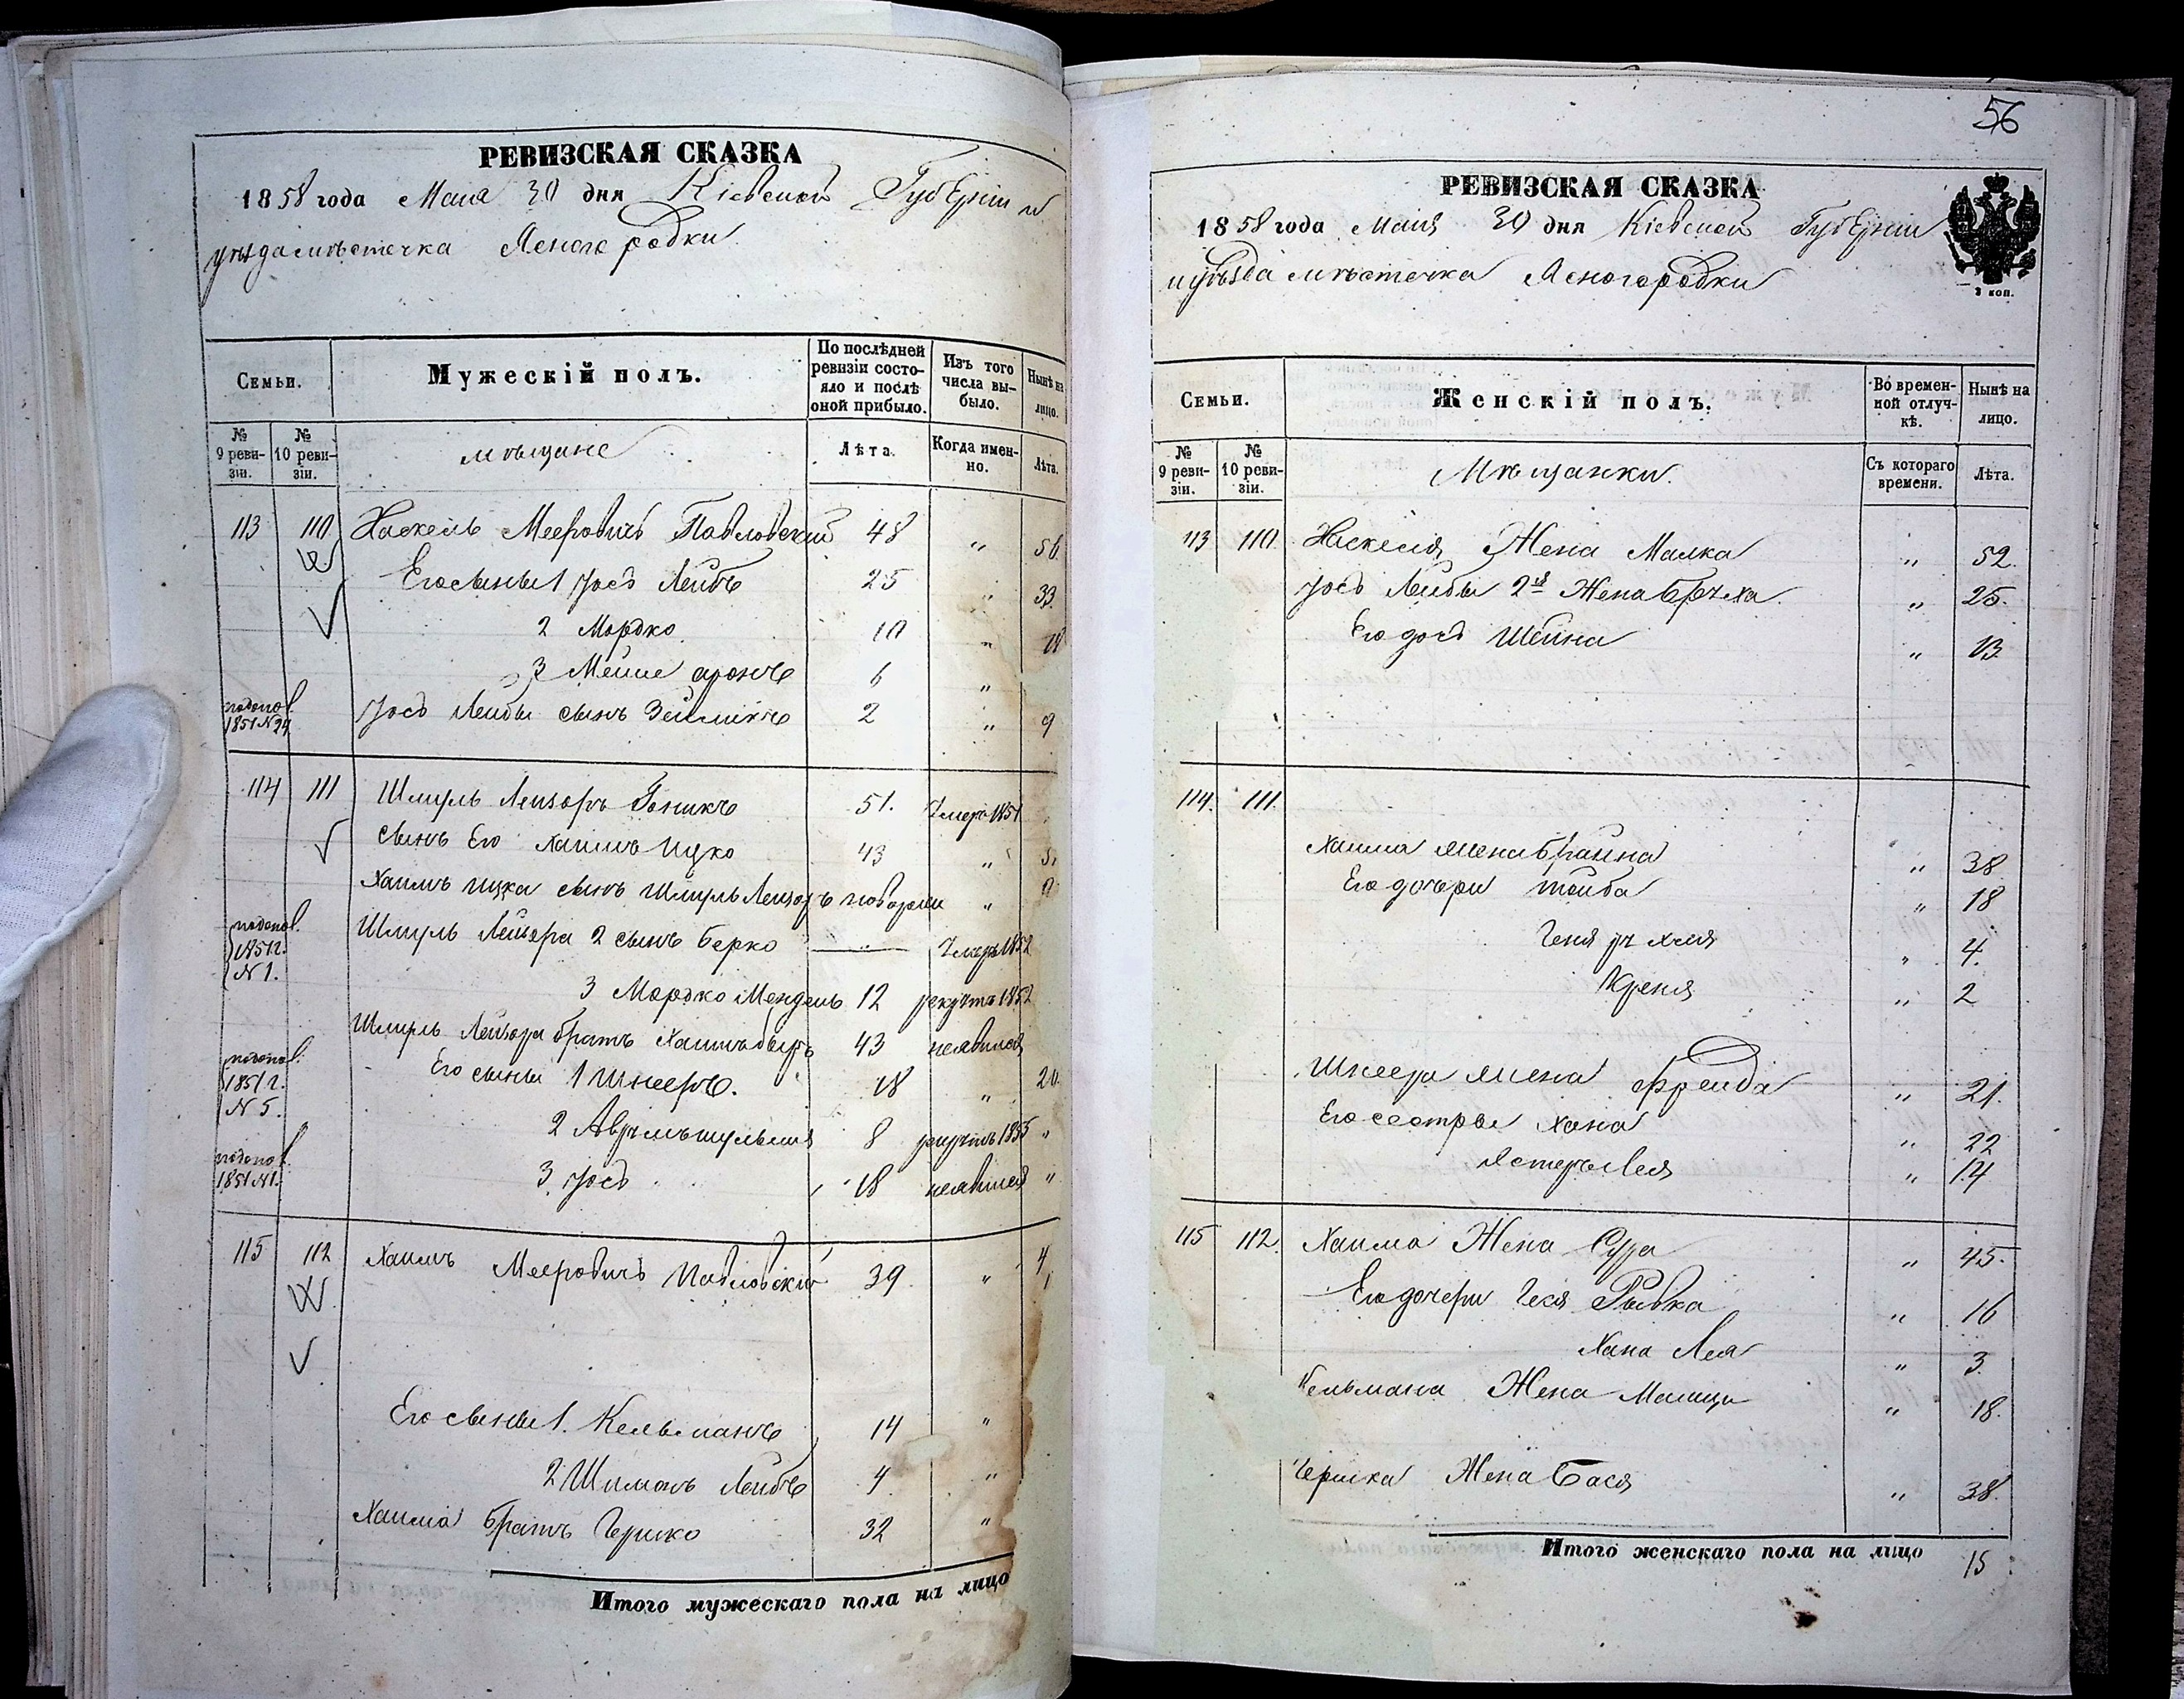 РЕВИЗСКАЯ СКАЗКА
1858 года Мая 30 дня Кіевской Губерніи и
уѣзда мѣстечка Ясногородки
Семьи.
Мужескій полъ.
По послѣдней ревизіи состояло и послѣ оной прибыло.
Изъ того числа выбыло.
Нынѣ на лицо.
№ 9 ревизіи.
№ 10 ревизіи.
мѣщане
Лѣта.
Когда именно.
Лѣта.
113 110 Хаскель Мееровичъ Павловский 48 " 56
Его сыны 1 Іось Лейбъ 25 " 33.
2 Мордко 10 " 18
3 Мейше аронъ 6 "
1851 N 24 Іось Лейбы сынъ Зейликъ 2 " 9
114 111 Шмуль Лейзоръ 51. Умеръ 1851
сынъ Его Хаимъ Ицко 43 "
Хаимъ Ицка сынъ Шмуль Лейзоръ "
1851 г. N 1. Шмуль Лейзора 2 сынъ Берко — Умеръ 1852
3 Мордко Мендель 12 рекрутъ 1852
Шмуль Лейзора братъ Хаимъ 43 неявился
1851 г. N 5. Его сыны 1 Шнееръ. 18 " 26
2 8 рекрутъ 1855 "
1851 N1. 3 Іось 18 неявился "
115 112 Хаимъ Мееровичъ Павловский 39 "
Его сыны 1. Кельманъ 14 "
2 Шимонъ Лейбъ 4. "
Хаима братъ Гершко 32 "
Итого мужескаго пола на лицо
56
РЕВИЗСКАЯ СКАЗКА
1858 года Мая 30 дня Кіевской Губерніи
и уѣзда мѣстечка Ясногородки
3 коп.
Семьи.
Женскій полъ.
Во временной отлучкѣ.
Нынѣ на лицо.
№ 9 ревизіи.
№ 10 ревизіи.
Мѣщанки.
Съ котораго времени.
Лѣта.
113 110. Хаскеля Жена Малка " 52.
Іось Лейбы 2я Жена " 25.
Его дочь Шейна " 13
114. 111.
Хаима жена Брайна " 38
Его дочери тойба " 18
Геня " 4.
Креня " 2
Шнеера жена Фрейда " 21.
Его сестры Хана " 22
Естеръ Лея " 14
115 112. Хаима Жена Сура " 45.
Его дочери Геся Рывка " 16
Хана Лея " 3
Кельмана Жена " 18.
Гершка Жена Бася " 38.
Итого женскаго пола на лицо 15